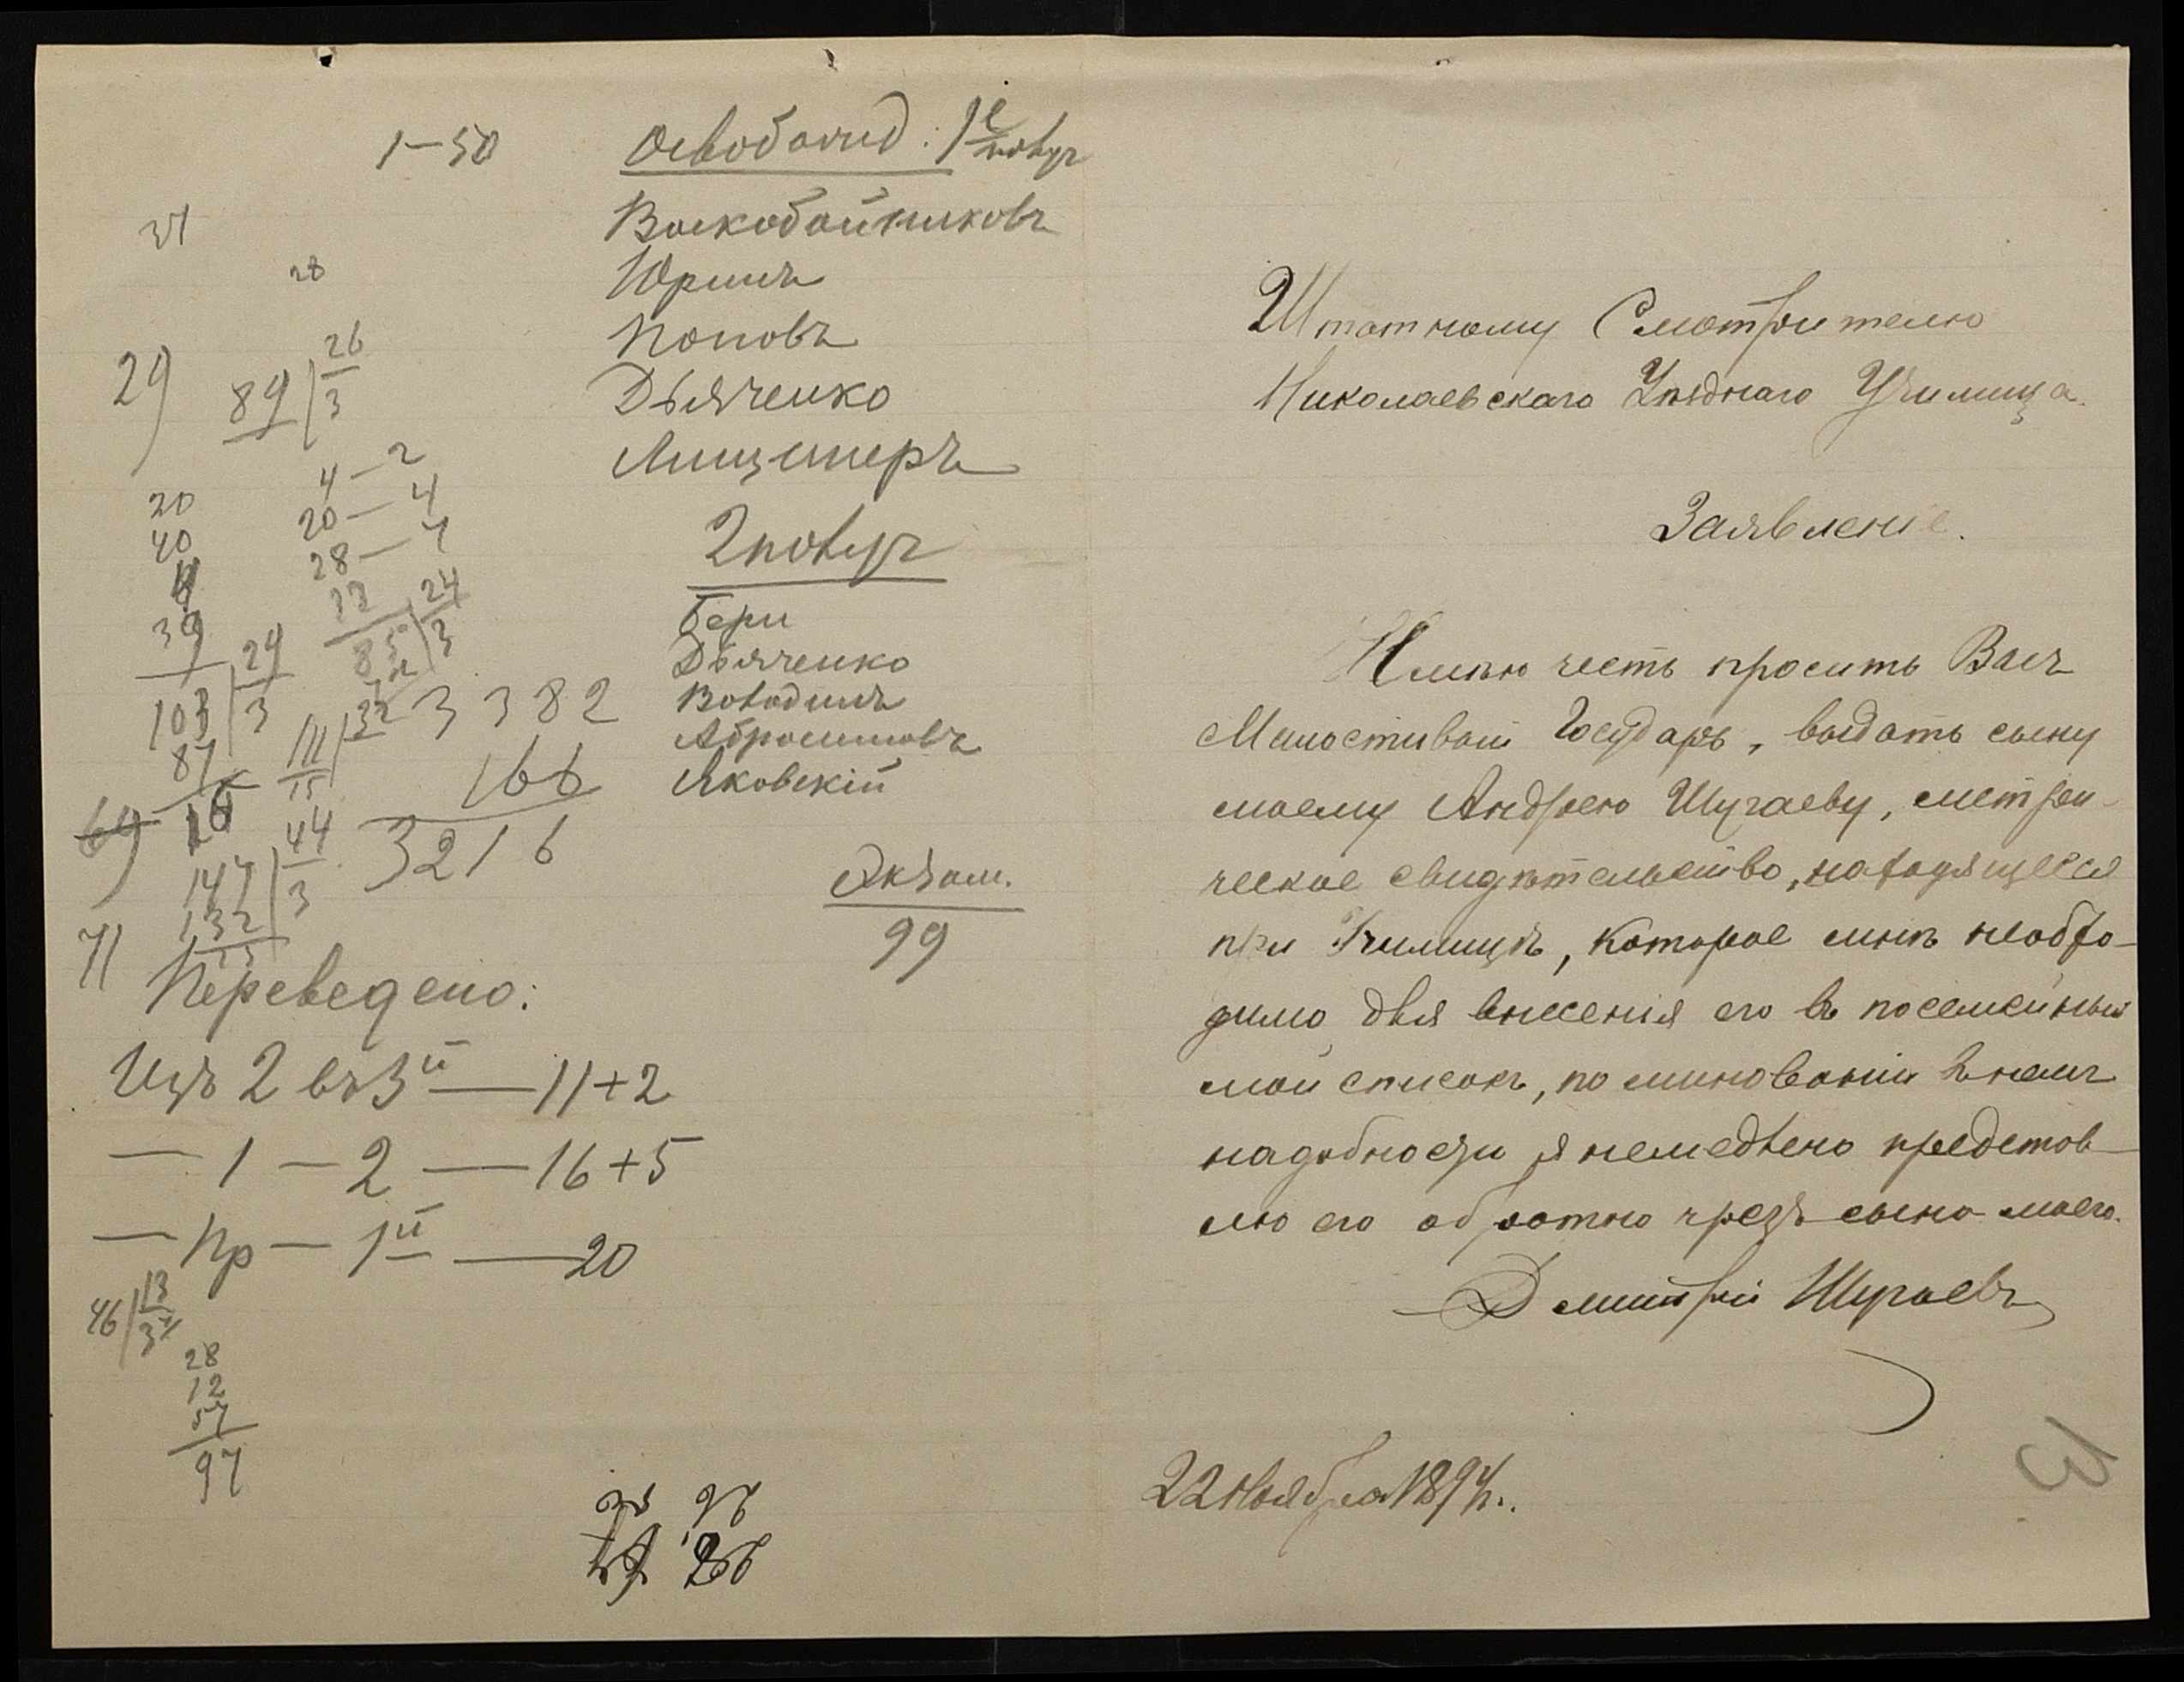 1—50
Освобожд: 1е полуг
Воскобойниковъ
Юринъ
Поповъ
Дьяченко
Лицинеръ
2 полуг
Гери
Дьяченко
Володинъ
Абросимовъ
Яковскій
Экзам.
99
31
28
29
89 26
3
4—2
20—4
28—7
20
40
39
103 29
3
87
16
24
3
111 32
15
3382
166
3216
69
147 44
132 3
15
71
Переведено:
Изъ 2 въ 3й — 11+2
— 1 — 2 — 16+5
— Пр — 1й — 20
46 13
28
12
57
97
Штатному Смотрителю
Николаевскаго Уѣзднаго Училища.
Заявленіе.
Имѣю честь просить Васъ
Милостивый Государь, выдать сыну
моему Андрею Шугаеву, метри-
ческое свидѣтельство, находящееся
при Училищѣ, которое мнѣ необхо-
димо для внесенія его въ посемейный
мой списокъ, по минованіи въ немъ
надобности я немедлено представ-
лю его обратно чрезъ сына моего.
Дмитрій Шугаевъ
22 Ноября 1894 г.